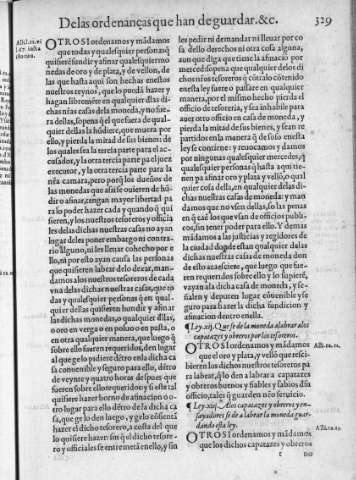 De las ordenanças que han de guardar. &c. 329
OTROSI ordenamos y mãdamos
que todas y qualesquier personas q̃
quisierẽ fundir y afinar qualesquier mo
nedas de oro y de plata, y de vellon, de
las que hasta aqui son hechas enestos
nuestros reynos, que lo pueda hazer y
hagan libremẽte en qualquier dlas di
chas nr̃as casas dela moneda, y no fue-
ra dellas, so pena q̃ el que fuera de qual
quier dellas la hũdiere, que muera por
ello, y pierda la mitad de sus bienes: de
los quales sea la tercia parte para el ac-
cusador, y la otra tercia parte pa el juez
executor, y la otra tercia parte para la
nr̃a camara, pero porq̃ los dueños de
las monedas que assi se ouieren de hũ-
dir o afinar, tengan mayor libertad pa
ra lo poder hazer cada y quando q̃ qui
sieren, y los nuestros tesoreros y officia
les delas dichas nuestras casas no ayan
lugar deles poner embargo ni contra-
rio alguno, ni les lleuar cohecho por e
llo, ni por esto ayan causa las personas
que quisieren labrar delo dexar, man-
damos alos nuestros tesoreros de cada
vna delas dichas nuestras casas, que to
das y qualesquier personas q̃ en qual-
quier dellas quisieren hundir y afinar
las dichas monedas, o qualquier dllas,
o oro en verga o en poluo o en pasta, o
en otra qualquier manera, que luego q̃
sobre ello fueren requeridos, den lugar
al que gelo pidiere dẽtro enla dicha ca
sa conuenible y seguro para ello, dẽtro
de veynte y quatro horas despues que
fueren sobre ello requeridos y si este tal
quisiere hazer horno de afinacion o o-
tro lugar para ello dẽtro de la dicha ca
sa, que ge lo den luego, y gelo cõsientã
hazer el dicho tesorero, a costa del que
lo quisiere hazer: sin q̃ el dicho tesore-
ro y officiales se entremetã en ello, y sin
les pedir ni demandar ni lleuar por co
sa dello derechos ni otra cosa alguna,
aun que diga que tiene la afinacio por
merced, o que qualquier delos di
chos nr̃os tesoreros q̃ cõtra lo cõtenido
enesta ley fuere o passare en qualquier
manera, por el mismo hecho pierda el
officio de tesoreria, y sea inhabile para
auer otro officio en casa de moneda, y
pierda la mitad de sus bienes, y sean re
partidos enla manera q̃ de suso enesta
ley se contiene: y reuocamos y damos
por ningunas qualesquier mercedes, q̃
qualesquier personas q̃ hasta aqui tie-
nen pa afinar oro y plata y vellõ, o qual
quier cosa della, en qualquier delas di-
chas nuestras casas de moneda: y man
damos que no vsen dellas, so las penas
en q̃ caẽ los que vsan de officios publi-
cos, sin tener poder para ello. Y demas
mãdamos a las justicias y regidores de
la ciudad donde estan qualquier delas
dichas nuestras casas de moneda don
de esto acaesciere, que luego que fue-
ren requeridos sobre ello y lo supierẽ,
vayan ala dicha casa de moneda, y se-
ñalen y deputen lugar cõuenible y se
guro para hazer la dicha fundicion y
afinacion dentro enella.
¶ Ley. xij. Que se de la moneda a labrar alos
capatazes y obreros por los tesoreros.
OTROSI ordenamos y mãdamos
que el oro y plata, y vellõ que resci
bieren los dichos nuestros tesoreros pa
ra labrar, q̃ lo den a labrar a capatazes
y obreros buenos y fiables y sabios dl
officio, tales q̃ guarden nr̃o seruicio.
¶ Ley. xiij. Alos capatazes y obreros y en-
sayadores se de a labrar la moneda guar-
dando esta ley.
OTROSI ordenamos y mãdamos
que los dichos capatazes y obreros